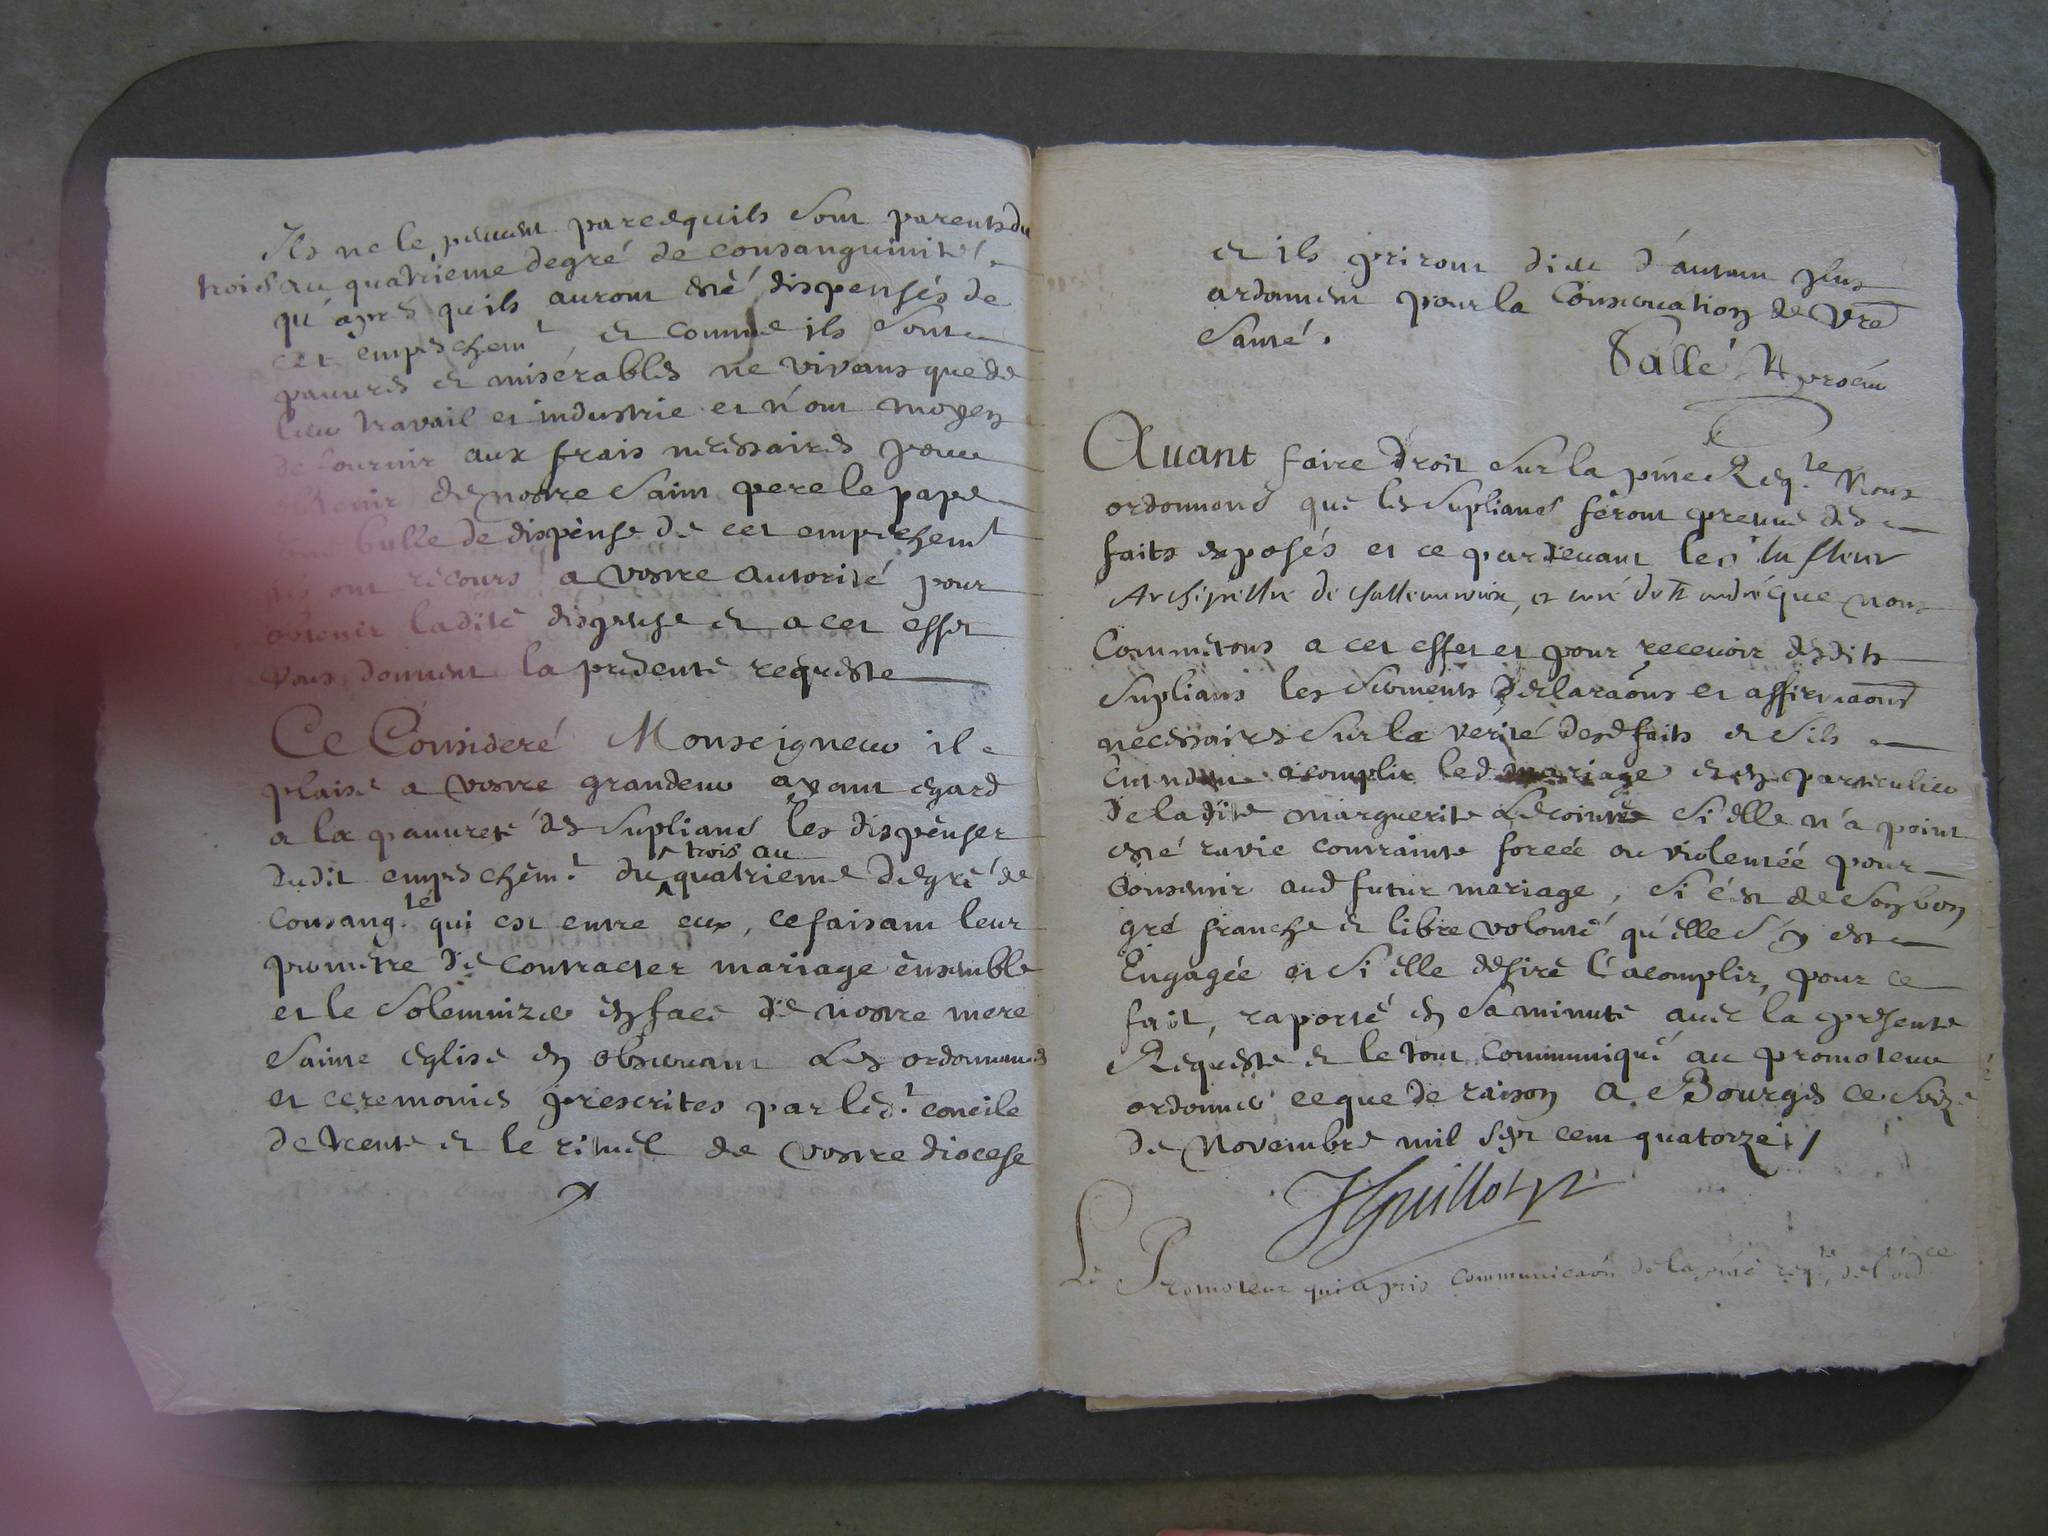 Ils ne le peuvent parcequils sont parents du
trois au quatrieme degré de consanguinité
qu'aprés quils auront esté dispensés de
cet empeschemt, et comme ils sont
pauures et misérables ne vivans que de
leur travail et industrie et n'ont moyen
de fournir aux frais necessaires pour
obtenir de nostre saint pere le pape
bulle de dispense de cet empeschemt
ils ont recours a vostre autorité pour
obtenir ladite dispense et a cet effet
vous donnent la presente requeste
Ce Consideré Monseigneur il
plaise a vostre grandeur ayant egard
a la pauureté des suplians les dispenser
dudit empeschemt du trois au quatrieme degré de
consang.té qui est entre eux, ce faisant leur
prometre de contracter mariage ensemble
et le solemnizer en face de nostre mere
sainte eglise en obseruant les ordonnances
et ceremonies prescrites par le st concile
de trente et le rituel de vostre diocese
et ils priront dieu d'autant plus
ardament pour la Conseruation de vre
santé.
Sallé
Auant faire droit sur la pnte Reqte Nous
ordonnons que les suplians feront preuue des
faits exposés et ce pardeuant le sr
Archiprestre de et curé de st andré que nous
Commetons a cet effet et pour receuoir desdits
suplians les serments declaraons et affirmaons
necessaires sur la verité desd faits et sils
entendent acomplir led mariage et en particulier
de ladite marguerite Lecointre si elle n'a point
esté ravie contrainte forcée ou violentée pour
consentir aud futur mariage, si c'est de son bon
gré franche et libre volonté qu'elle s'y est
Engagée et si elle desire l'acomplir, pour ce
fait, raporté en sa minute auec la presente
Requeste et le tout communiqué au promoteur
ordonner ce que de raison A Bourges ce seize
de Novembre mil sept cent quatorze /
Le Promoteur qui a pris communicaon de la pnte reqte, de l'ordce